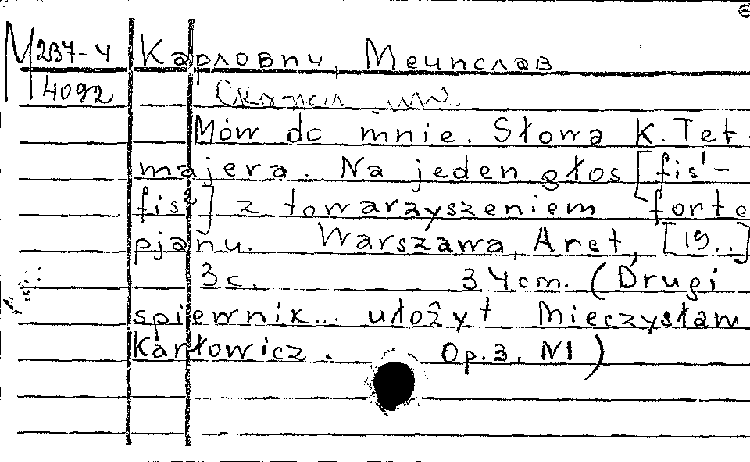 М237-4 Карлович, Мечислав
14092
Mów do mnie. Słowa K. Tet-
majera. Na jeden głos [fis¹-
fis²] z towarzyszeniem forte
pjanu. Warszawa, Arct, [19..]
3 с. 34 cm. (Drugi
spiewnik... ułożył Mieczysław
Karłowicz. Op. 3, N1)